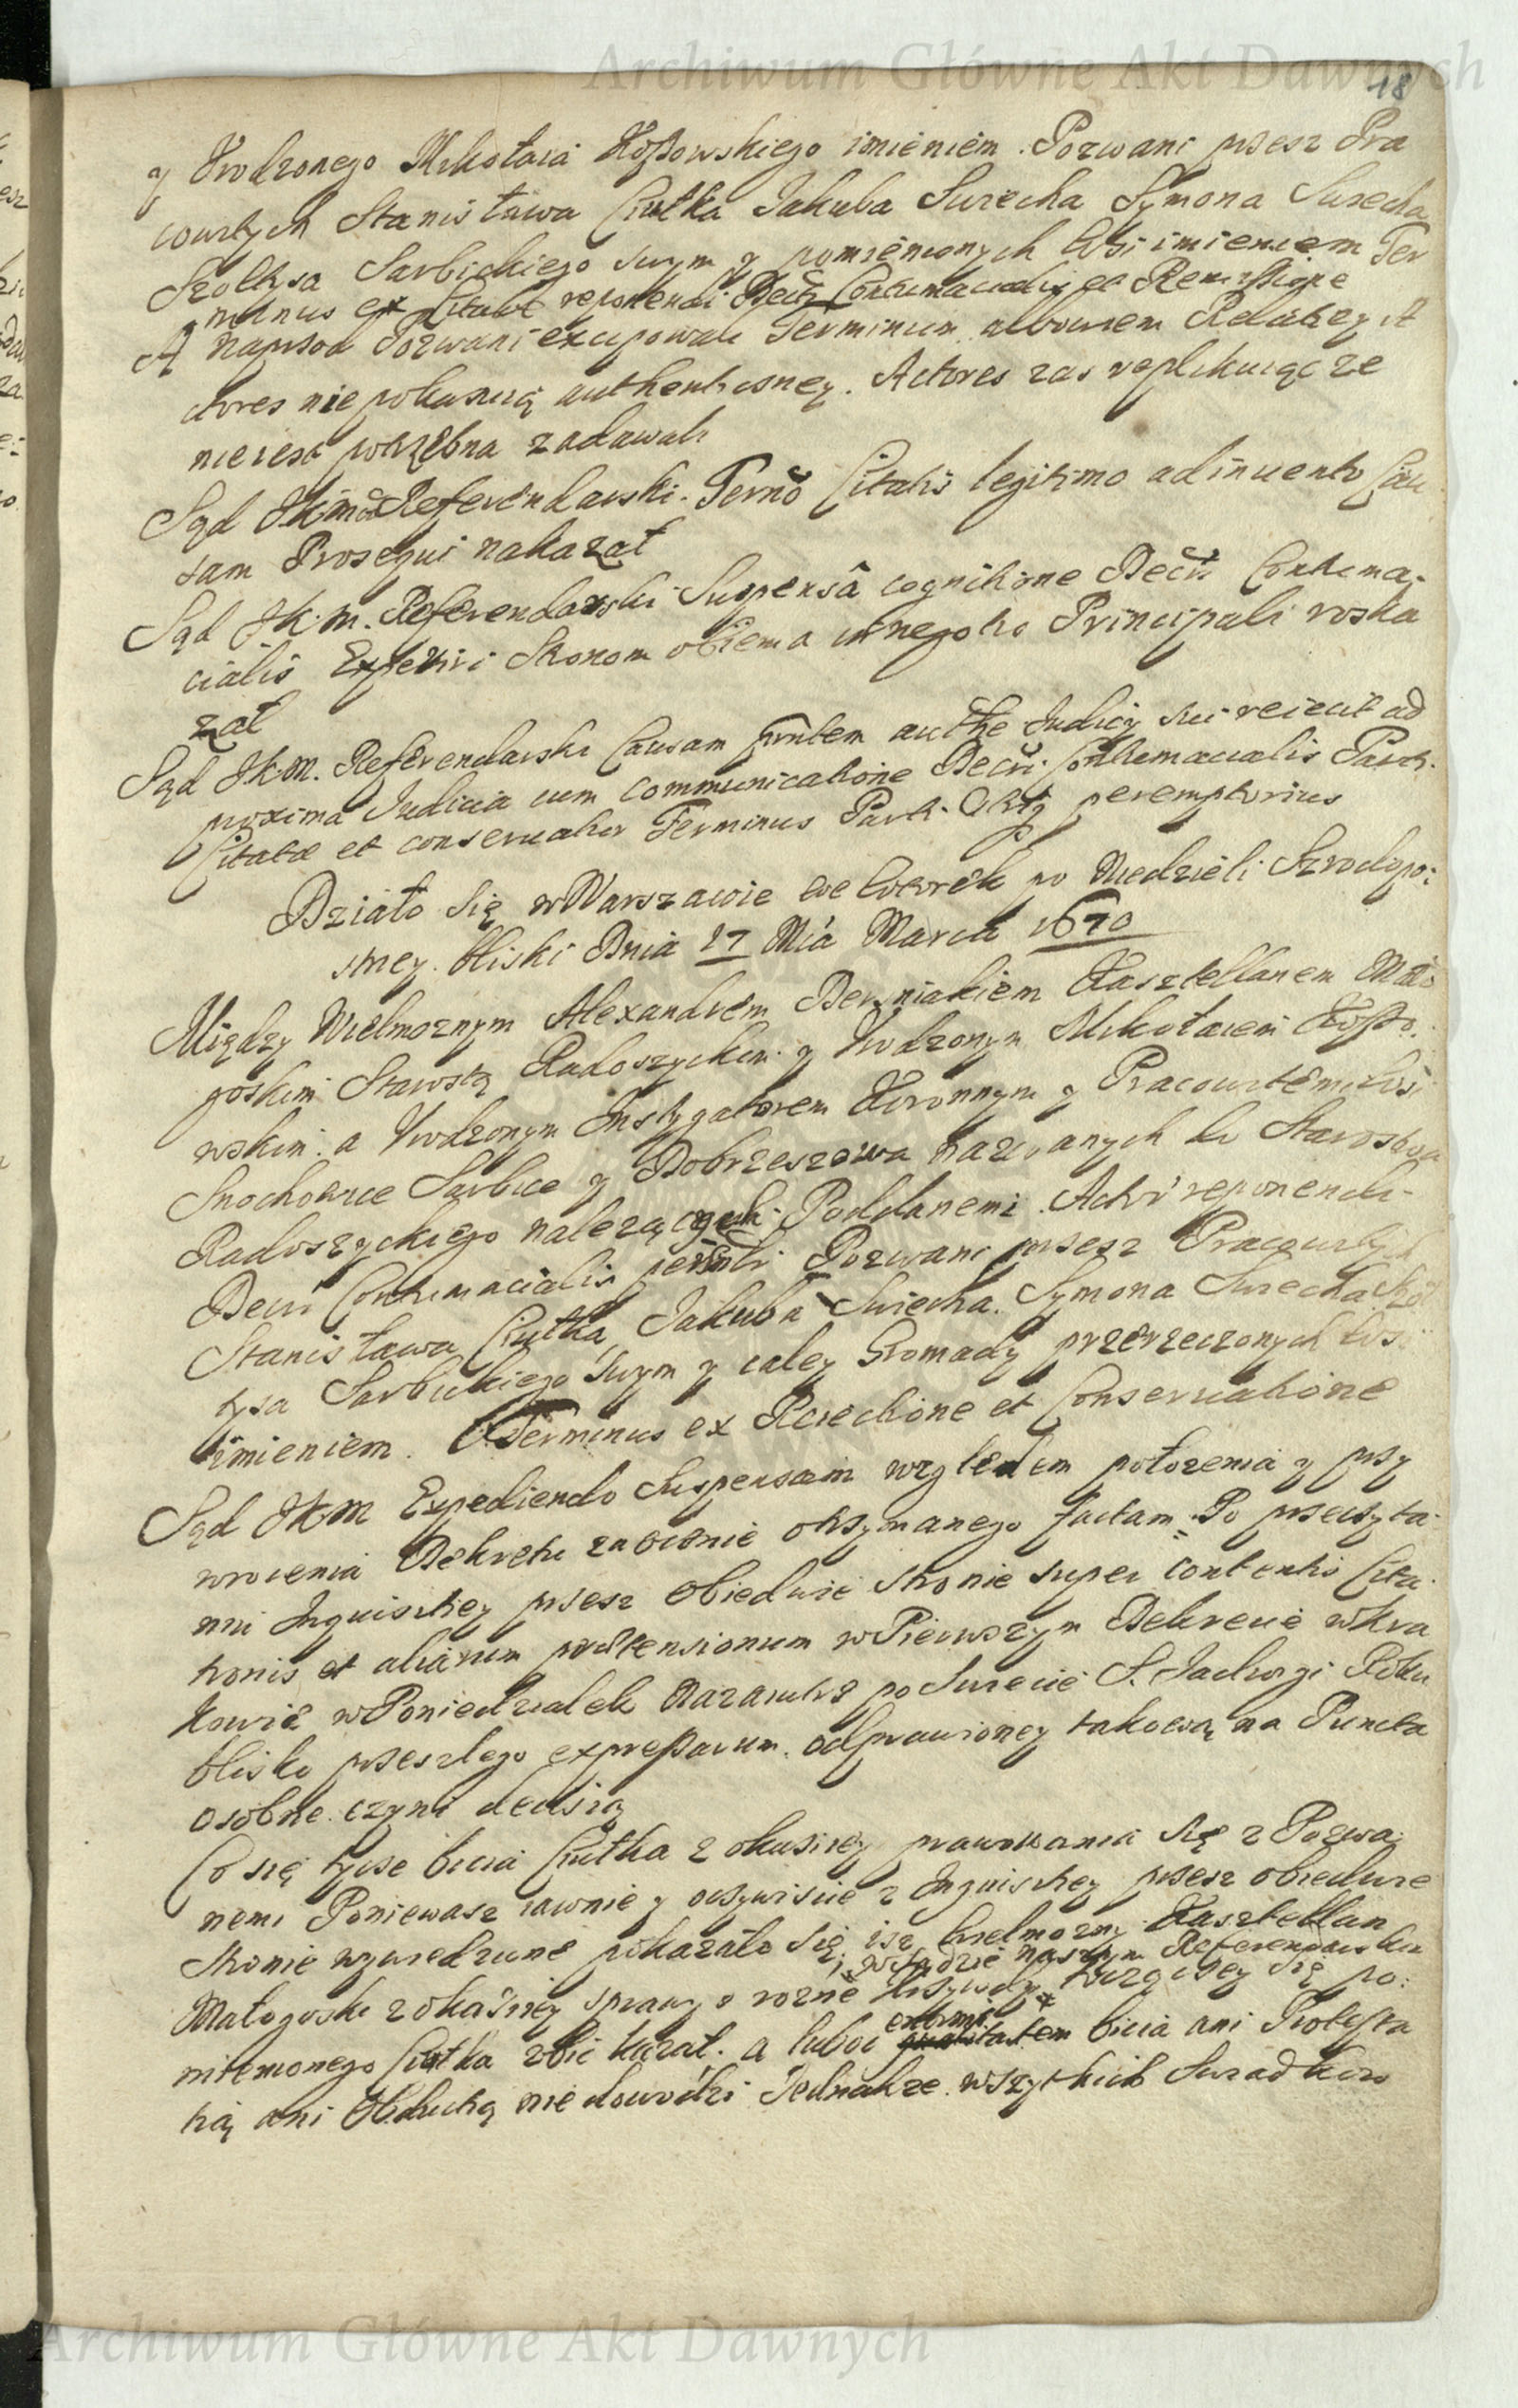 Archiwum Główne Akt Dawnych
18
y Urodzonego Mikołaia Kossowskiego imieniem. Pozwani przez Pra
cowitych Stanisława Ciutka Jakuba Swiecha Symona Swiecha
Szołtysa Sarbickiego swym y pomienionych Wsi imieniem Ter
minus ex Citatõe reponendi Decti Contumacialis ac Remissione
A naprzod Pozwani excypowali Terminum albowiem Relatiey A
ctores nie pokazuią authentyczney. Actores zas replikuiąc ze
nie iest potrzebna zadawali
Sąd JKmci Referendarski. Termõ Citatis legitimo adinuento Cau
sam Prosequi nakazał
Sąd JK.M. Referendarski Suspensâ cognitione Decti Contuma,
cialis Experiri Stronom obiema in negotio Principali roska
zał
Sąd JKM. Referendarski Causam pntem authe Iudicij sui reiecit ad
proxima Iudicia cum communicatione Decti Contumacialis Parti
Citatæ et conseruatur Terminus Parti Citt peremptorius
Działo się w Warszawie we Wtorek po Niedzieli Szrodopo:
stney bliski Dnia 17 Mca Marca 1670
Między Wielmoznym Alexandrem Bemiakiem Kasztellanem Mało
goskim Starostą Radoszyckim y Urodzonym Mikołaiem Kosso,
wskim a Urodzonym Instygatorem Koronnym y Pracowitemi Wsi
Snochowice Sarbice y Dobrzeszowa nazwanych do Starostwa
Radoszyckiego nalezącychi Poddanemi. Actu reponendi
Decti Contumacialis Pozwani przesz Pracowitych
Stanisława Ciutka Jakuba Swiecha. Symona Swiecha Szoł
tysa Sarbickiego swym y całey Gromady przerzeczonych Wsi
imieniem. Terminus ex Reiectione et Conseruatione
Sąd JKM Expediendo Suspensam względem połozenia y przy
wrocenia Dekretu zaocznie otrzymanego factam. Po przeczyta
niu Inquisitiey przesz obiedwie stronie super contentis Cita
tionis et aliarum prætensionum w Pierwszym Dekrecie w Kra
kowie w Poniedziałek Nazaiutrz po Swiecie S. Jadwigi Roku
blisko przeszłego expressarum. odprawioney takową na Puncta
osobne czyni decisią
Co się tycze bicia Ciutka z okasiey prawowania się z Pozwa,
nemi Poniewasz iawnie y oczywiscie z Inquisitiey przesz obiedwie
stronie wywiedzione pokazało się, isz Wielmozny Kasztellan
w Sądzie naszym Referendarskim
Małogoski z okasiey sprawy o rozne krzywdy toczącey się po:
enormi
mienionego Ciutka zbic kazał. a luboc bicia ani Protesta
tią ani Obductią nie dowodzi Jednakze wszytkich Swiadkow
Archiwum Główne Akt Dawnych